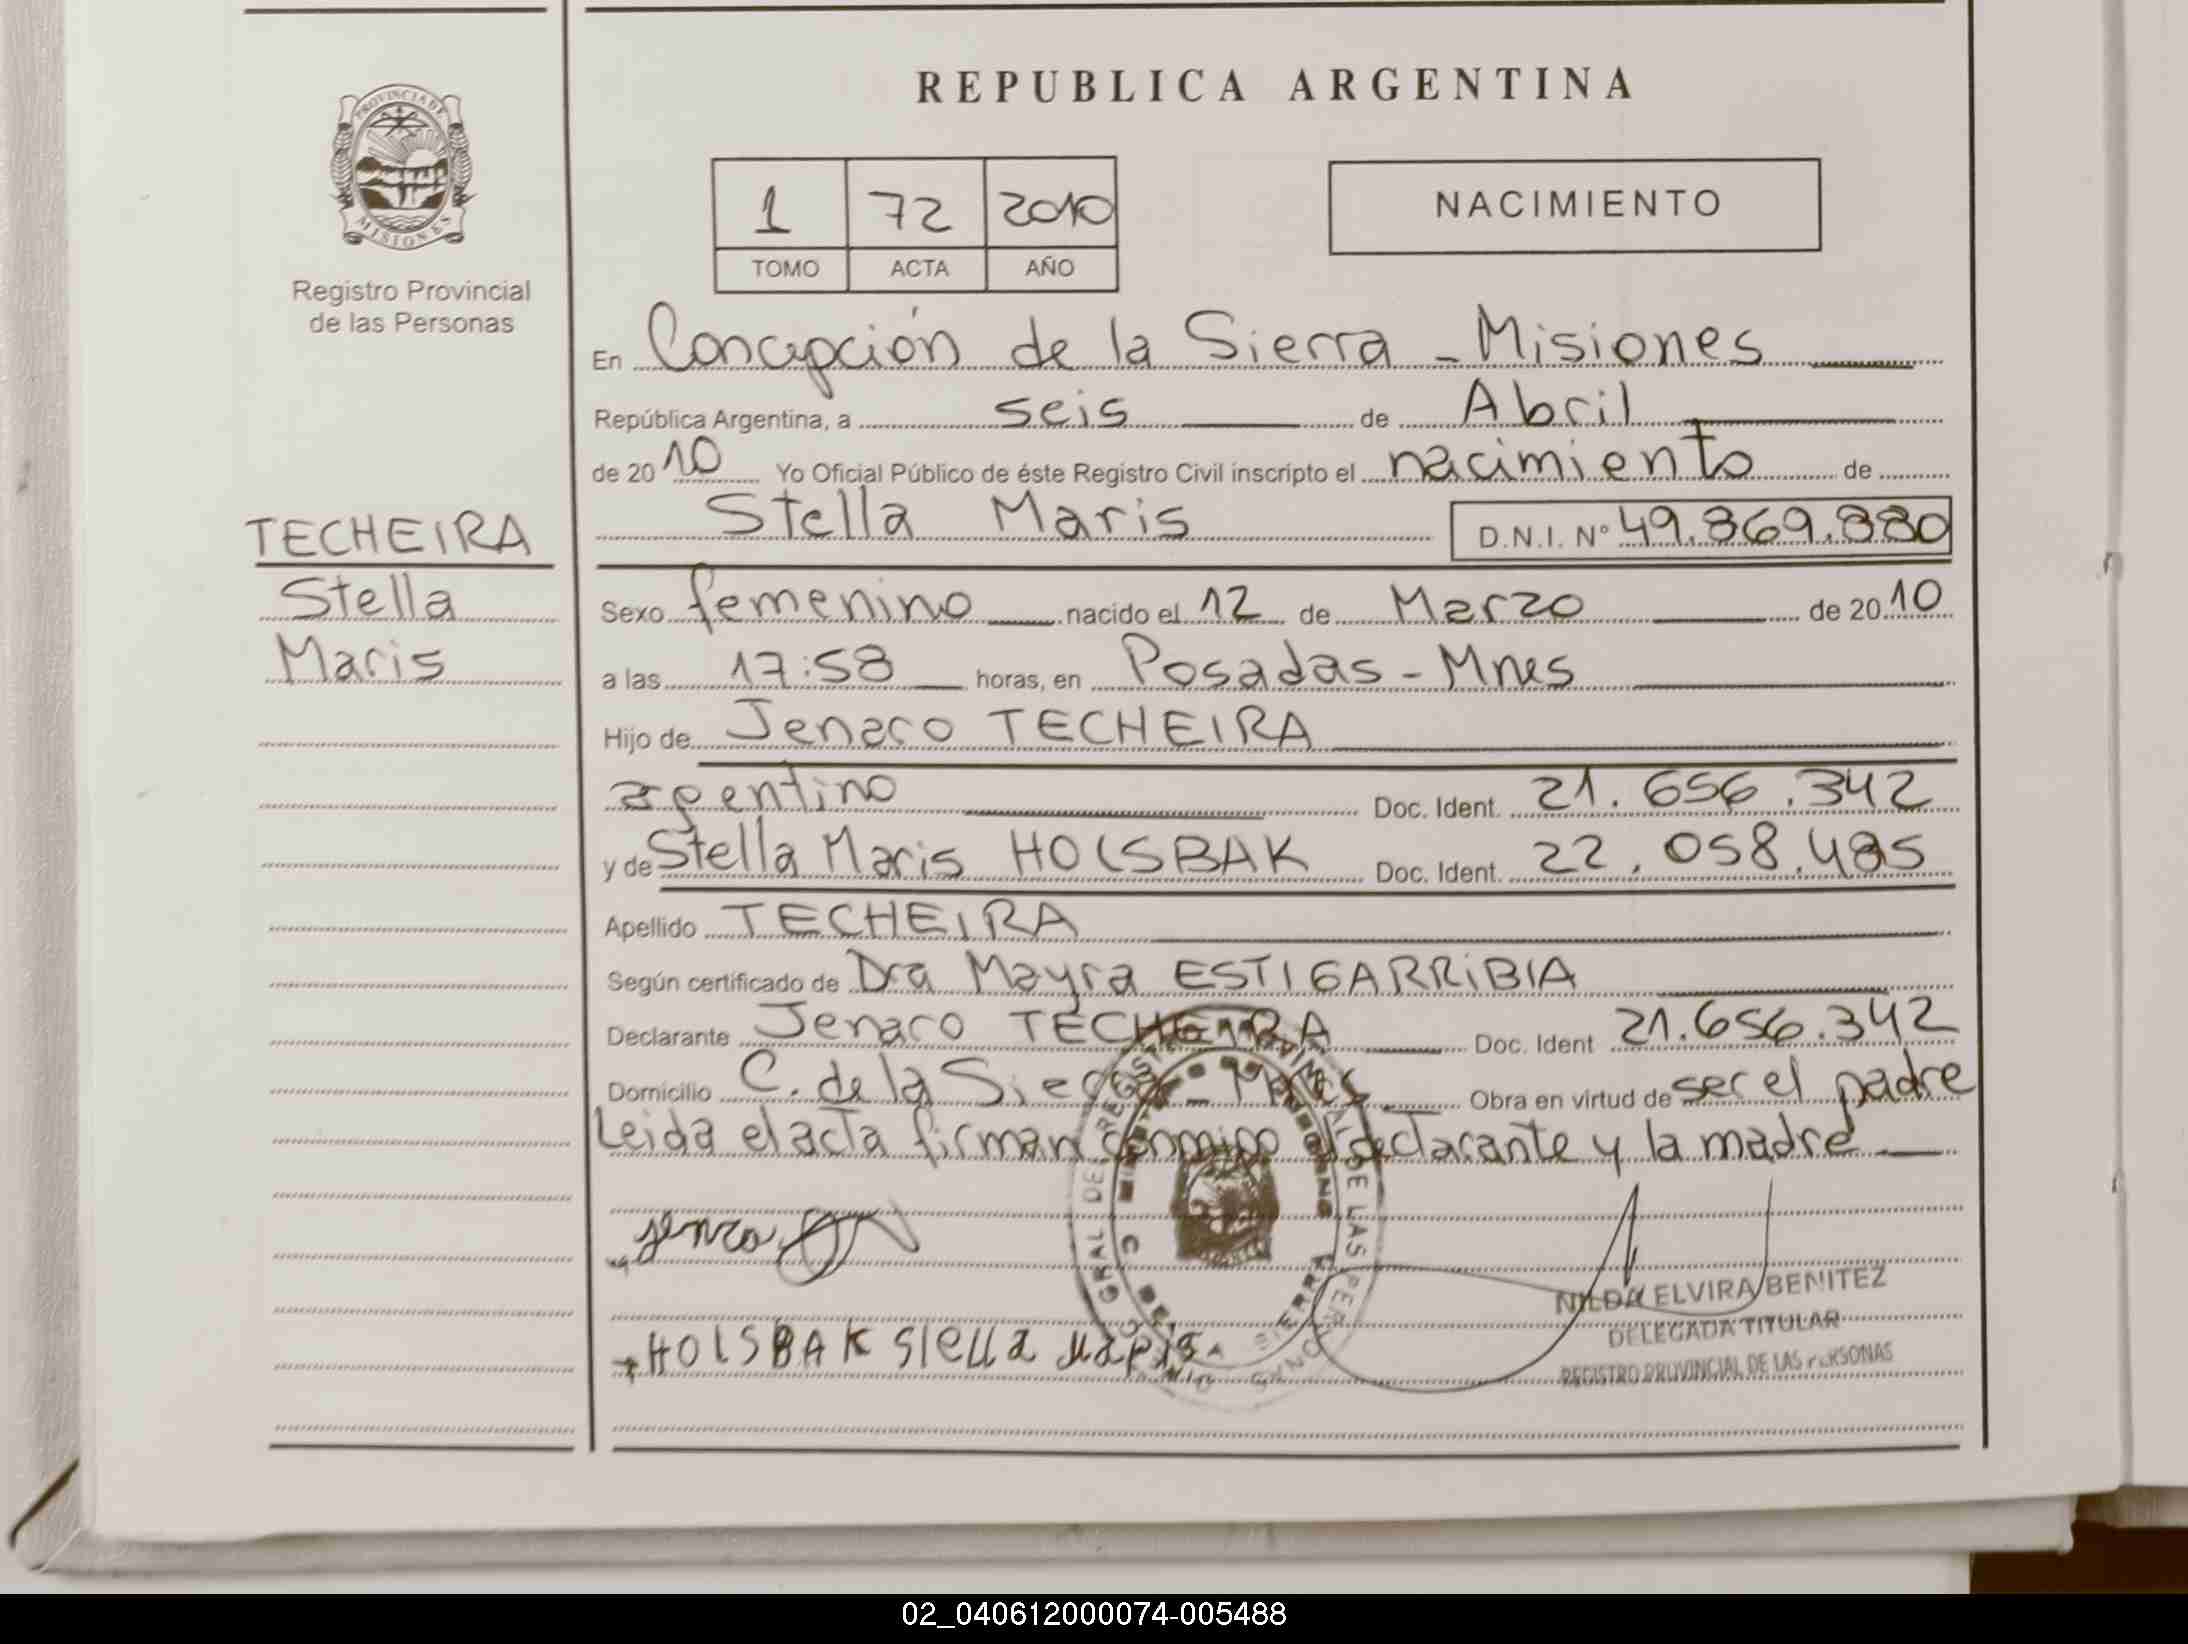 REPUBLICA ARGENTINA
PROVINCIA DE
MISIONES
Registro Provincial
de las Personas
1 72 2010
TOMO ACTA AÑO
NACIMIENTO
En Concepción de la Sierra - Misiones
República Argentina, a seis de Abril
de 2010 Yo Oficial Público de éste Registro Civil inscripto el nacimiento de
Stella Maris D.N.I. Nº 49.869.880
TECHEIRA
Stella
Maris
Sexo femenino nacido el 12 de Marzo de 2010
a las 17:58 horas, en Posadas - Mnes
Hijo de Jenaro TECHEIRA
argentino Doc. Ident. 21.656.342
y de Stella Maris HOLSBAK Doc. Ident. 22.058.485
Apellido TECHEIRA
Según certificado de Dra Mayra ESTIGARRIBIA
Declarante Jenaro TECHEIRA Doc. Ident 21.656.342
Domicilio C. de la Sierra - Mnes. Obra en virtud de ser el padre
Leida el acta firman conmigo el declarante y la madre
HOLSBAK Stella Maris
NILDA ELVIRA BENITEZ
DELEGADA TITULAR
REGISTRO PROVINCIAL DE LAS PERSONAS
02_040612000074-005488